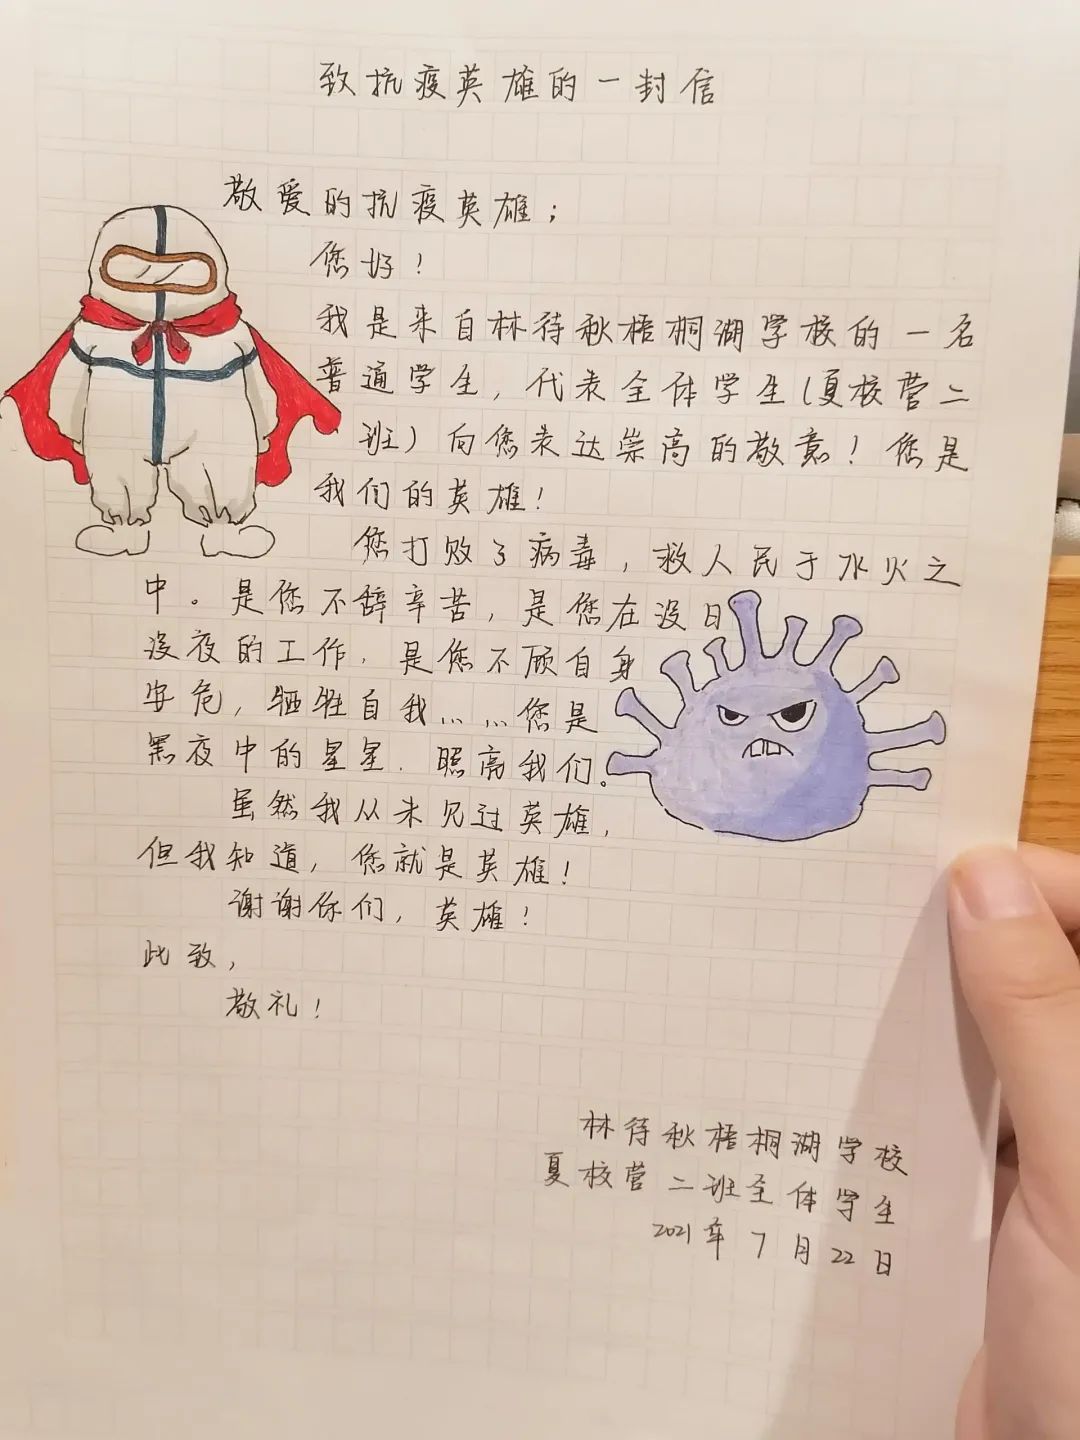 致抗疫英雄的一封信
敬爱的抗疫英雄；
您好！
我是来自林待秋梧桐湖学校的一名
普通学生，代表全体学生（夏校营二
班）向您表达崇高的敬意！您是
我们的英雄！
您打败了病毒，救人民于水火之
中。是您不辞辛苦，是您在没日
没夜的工作，是您不顾自身
安危，牺牲自我……您是
黑夜中的星星．照亮我们。
虽然我从未见过英雄，
但我知道，您就是英雄！
谢谢你们，英雄！
此致，
敬礼！
林待秋梧桐湖学校
夏校营二班全体学生
2021年7月22日